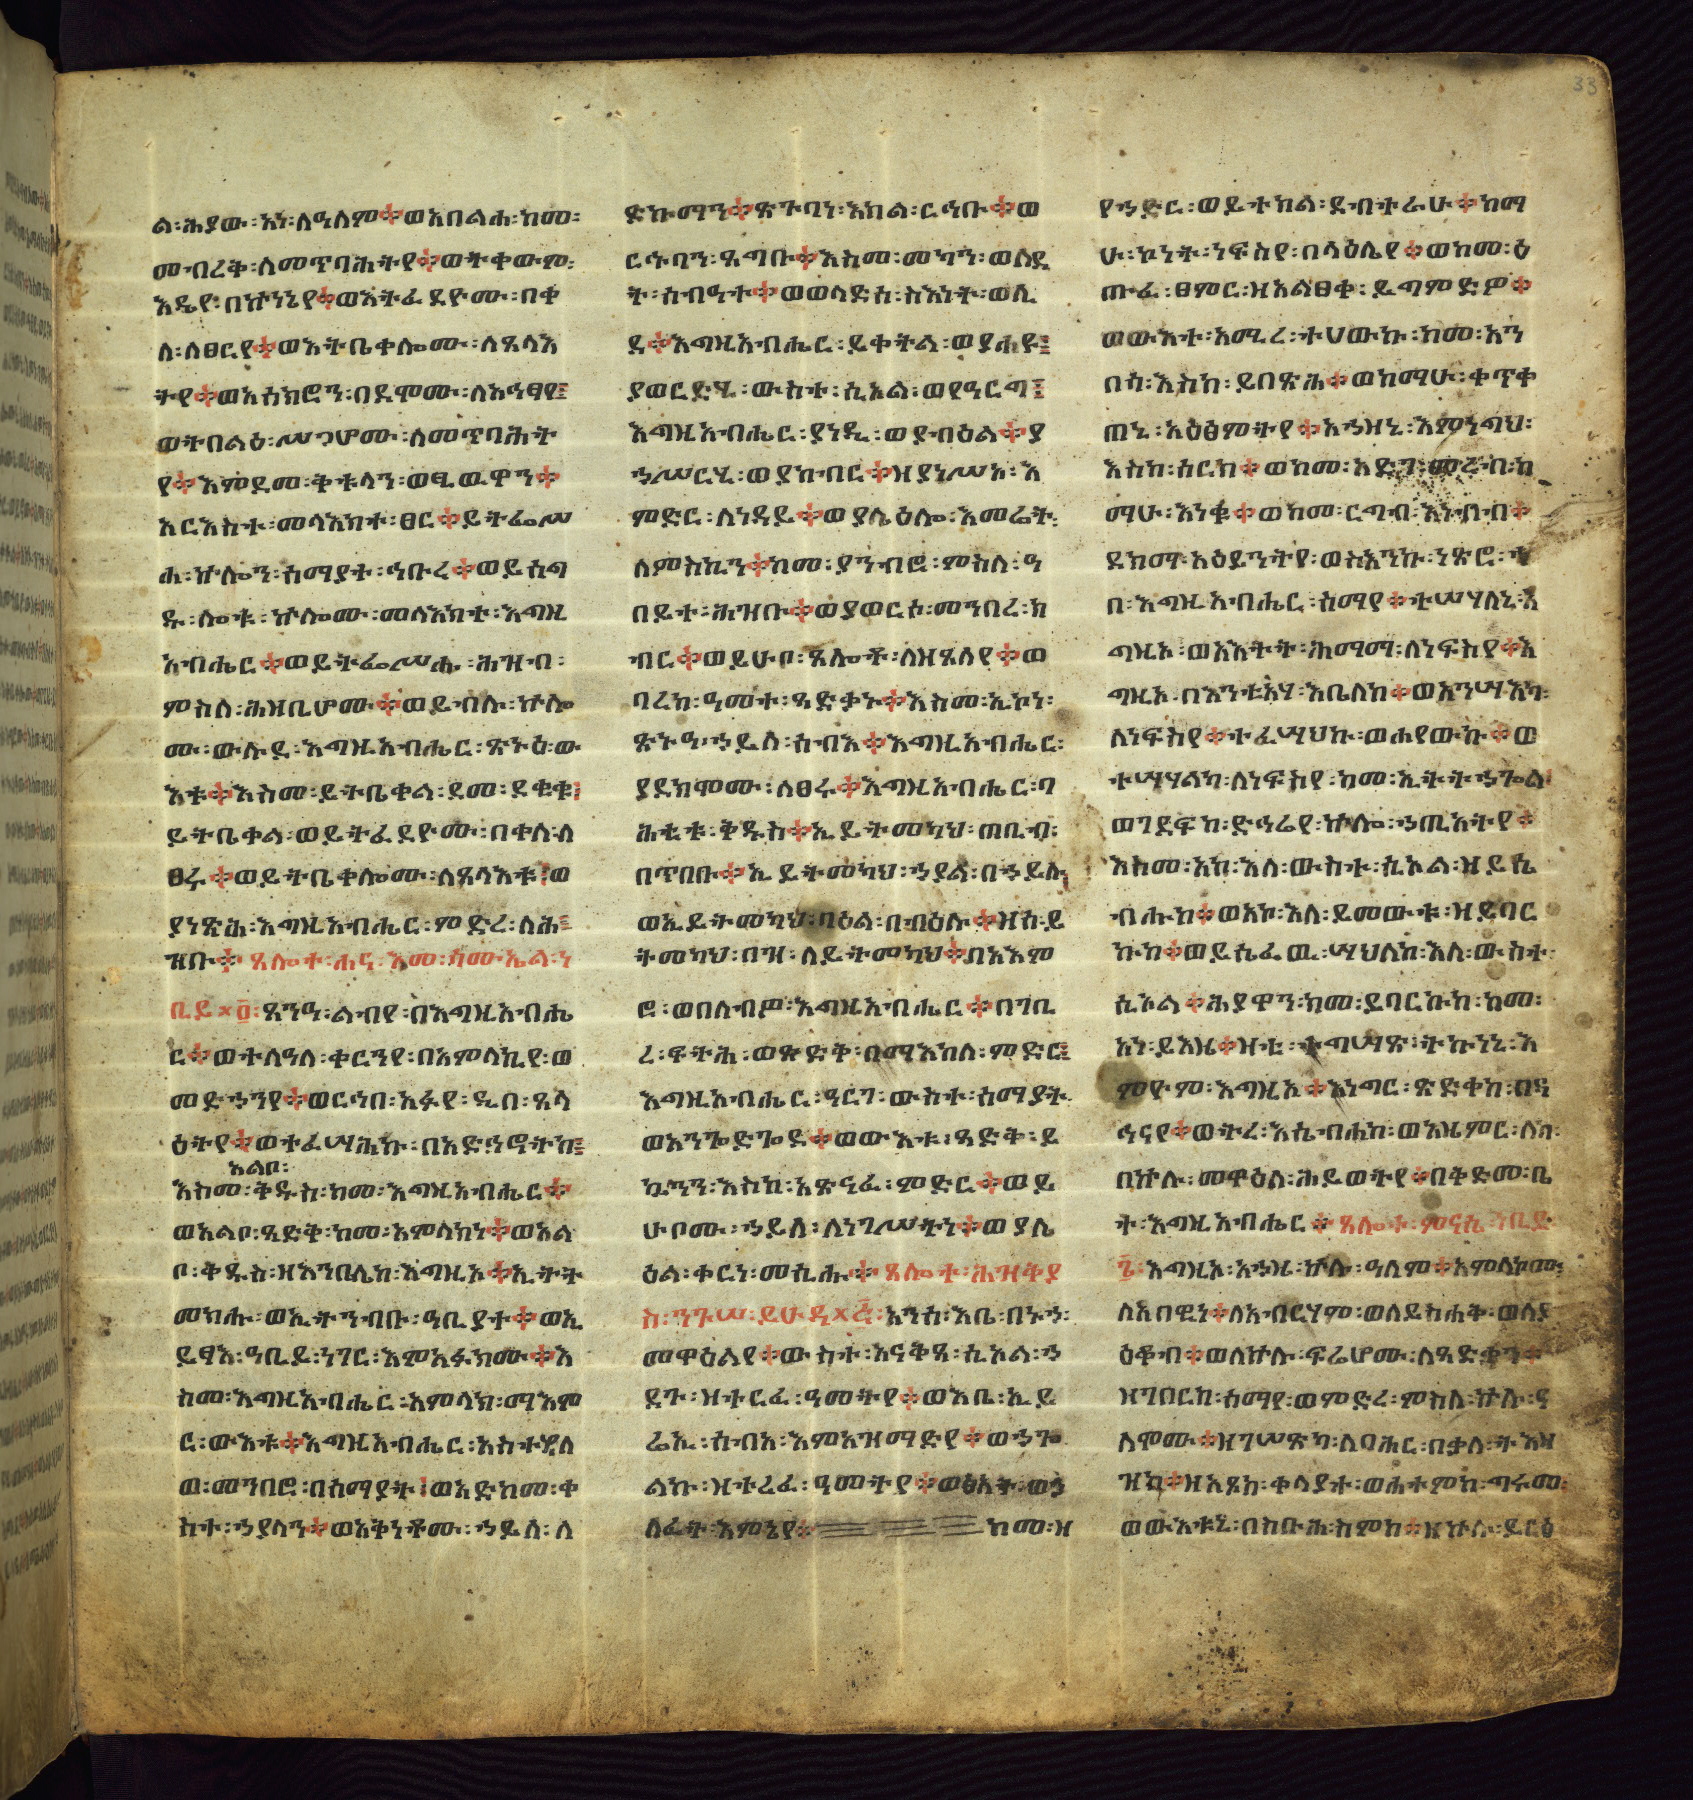 33
ል፡ሕያው፡አነ፡ለዓለም፨ወአበልሕ፡ከመ፡
መብረቅ፡ለመጥባሕትየ፨ወትቀውም፡
እዴየ፡በኵነኔየ፨ወእትፈደዮሙ፡በቀ
ለ፡ለፀርየ፨ወእትቤቀሎሙ፡ለጸላእ
ትየ፨ወአሰክሮን፡በደሞሙ፡ለአሕፃየ፤
ወትበልዕ፡ሥጋሆሙ፡ለመጥባሕት
የ፨እምደመ፡ቅቱላን፡ወፂዉዋን፨
አርእስተ፡መላእክተ፡ፀር፨ይትፌሥ
ሐ፡ኵሎን፡ሰማያት፡ኅቡረ፨ወይሰግ
ዱ፡ሎቱ፡ኵሎሙ፡መላእክተ፡እግዚ
አብሔር፨ወይትፌሥሑ፡ሕዝብ፡
ምስለ፡ሕዝቢሆሙ፨ወይብሉ፡ኵሎ
ሙ፡ውሉደ፡እግዚአብሔር፡ጽኑዕ፡ው
እቱ፨እስመ፡ይትቤቀል፡ደመ፡ደቂቁ፤
ይትቤቀል፡ወይትፈደዮሙ፡በቀለ፡ለ
ፀሩ፨ወይትቤቀሎሙ፡ለጸላእቱ፤ወ
ያነጽሕ፡እግዚአብሔር፡ምድረ፡ለሕ፤
ዝቡ፨ጸሎተ፡ሐና፡እመ፡ሳሙኤል፡ነ
ቢይ፡ጸንዓ፡ልብየ፡በእግዚአብሔ
ር፨ወተለዓለ፡ቀርንየ፡በአምላኪየ፡ወ
መድኃንየ፨ወርኅበ፡አፉየ፡ዲበ፡ጸላ
ዕትየ፨ወተፈሣሕኩ፡በአድኅኖትከ፤
አልቦ፡
እስመ፡ቅዱስ፡ከመ፡እግዚአብሔር፨
ወአልቦ፡ጻድቅ፡ከመ፡አምላክነ፨ወአል
ቦ፡ቅዱስ፡ዘእንበሌከ፡እግዚኦ፨ኢትት
መክሑ፡ወኢትንብቡ፡ዓቢያተ፨ወኢ
ይፃእ፡ዓቢይ፡ነገር፡እምአፉክሙ፨እ
ስመ፡እግዚአብሔር፡አምላክ፡ማእም
ር፡ውእቱ፨እግዚአብሔር፡አስተዳለ
ወ፡መንበሮ፡በሰማያት፤ወአድከመ፡ቀ
ስተ፡ኃያላን፨ወአቅነቶሙ፡ኃይለ፡ለ
ድኩማን፨ጽጉባነ፡እክል፡ርኅቡ፨ወ
ርኁባን፡ጸግቡ፨እስመ፡መካን፡ወለደ
ት፡ሰብዓተ፨ወወላድስ፡ስእነት፡ወሊ
ደ፨እግዚአብሔር፡ይቀትል፡ወያሐዩ፤
ያወርድሂ፡ውስተ፡ሲኦል፡ወየዓርግ፤
እግዚአብሔር፡ያነዲ፡ወያብዕል፨ያ
ኃሥርሂ፡ወያከብር፨ዘያነሥእ፡እ
ምድር፡ለነዳይ፨ወያሌዕሎ፡እመሬት፡
ለምስኪን፨ከመ፡ያንብሮ፡ምስለ፡ዓ
በይተ፡ሕዝቡ፨ወያወርሶ፡መንበረ፡ክ
ብር፨ወይሁቦ፡ጸሎቶ፡ለዘጸለየ፨ወ
ባረከ፡ዓመተ፡ጻድቃኑ፨እስመ፡ኢኮነ፡
ጽኑዓ፡ኃይለ፡ሰብእ፨እግዚአብሔር፡
ያደክሞሙ፡ለፀሩ፨እግዚአብሔር፡ባ
ሕቲቱ፡ቅዱስ፨ኢይትመካህ፡ጠቢብ፡
በጥበቡ፨ኢይትመካህ፡ኃያል፡በኃይሉ፤
ወኢይትመካህ፡ባዕል፡በብዕሉ፨ዘሰ፡ይ
ትመካህ፡በዝ፡ለይትመካህ፨በአእም
ሮ፡ወበለብዎ፡እግዚአብሔር፨በገቢ
ረ፡ፍትሕ፡ወጽድቅ፡በማእከለ፡ምድር፤
እግዚአብሔር፡ዓርገ፡ውስተ፡ሰማያት፡
ወአንጐድጐደ፨ወውእቱ፡ጻድቅ፡ይ
ኴንን፡እስከ፡አጽናፈ፡ምድር፨ወይ
ሁቦሙ፡ኃይለ፡ለነገሥትነ፨ወያሌ
ዕል፡ቀርነ፡መሲሑ፨ጸሎተ፡ሕዝቅያ
ስ፡ንጉሠ፡ይሁዳ፡አንሰ፡እቤ፡በኑኃ፡
መዋዕልየ፨ውስተ፡አናቅጸ፡ሲኦል፡ኃ
ደጉ፡ዝተርፈ፡ዓመትየ፨ወእቤ፡ኢይ
ሬኢ፡ሰብአ፡እምአዝማድየ፨ወኃጐ
ልኩ፡ዘተረፈ፡ዓመትየ፨ወፅአት፡ወኃ
ለፈት፡እምኔየ፨ ከመ፡ዘ
የኃድር፡ወይተክል፡ደብተራሁ፨ከማ
ሁ፡ኮነት፡ነፍስየ፡በላዕሌየ፨ወከመ፡ዕ
ጡፈ፡ፀምር፡ዘአልፀቀ፡ይግምድዎ፨
ወውእተ፡አሚረ፡ተህውኩ፡ከመ፡አን
በሳ፡እስከ፡ይበጽሕ፨ወከማሁ፡ቀጥቀ
ጠኒ፡አዕፅምትየ፨አኃዘኒ፡እምነግህ፡
እስከ፡ሰርክ፨ወከመ፡አድገ፡መረብ፡ከ
ማሁ፡እነቁ፨ወከመ፡ርግብ፡እነብብ፨
ደክማ፡አዕይንትየ፡ወስእንኩ፡ነጽሮ፡
በ፡እግዚአብሔር፡ሰማየ፨ተሣሃለኒ፡እ
ግዚኦ፡ወአእትት፡ሕማማ፡ለነፍስየ፨እ
ግዚኦ፡በእንቲአሃ፡እቤለከ፨ወአንሣእካ፡
ለነፍስየ፨ተፈሣህኩ፡ወሐየውኩ፨ወ
ተሣሃልካ፡ለነፍስየ፡ከመ፡ኢትትኃጐል
ወገደፍከ፡ድኅሬየ፡ኵሎ፡ኃጢአትየ፨
እስመ፡አኮ፡እለ፡ውስተ፡ሲኦል፡ዘይሴ
ብሑከ፨ወአኮ፡እለ፡ይመውቱ፡ዘይባር
ኩከ፨ወይሴፈዉ፡ሣህለከ፡እለ፡ውስተ
ሲኦል፨ሕያዋን፡ከመ፡ይባርኩከ፡ከመ፡
አነ፡ይእዜ፨ዝቲ፡ተግሣጽ፡ትኩነኒ፡እ
ምዮም፡እግዚኦ፨እነግር፡ጽድቀከ፡በዳ
ኅናየ፨ወትረ፡እሴብሐከ፡ወእዜምር፡ለከ፡
በኵሉ፡መዋዕለ፡ሕይወትየ፨በቅድመ፡ቤ
ተ፡እግዚአብሔር፨ጸሎተ፡ምናሴ፡ነቢይ
፡እግዚኦ፡አኃዜ፡ኵሉ፡ዓለም፨አምላኮሙ፡
ለአበዊነ፨ለአብርሃም፡ወለይስሐቅ፡ወለያ
ዕቆብ፨ወለኵሉ፡ፍሬሆሙ፡ለጻድቃን፨
ዘገበርከ፡ሰማየ፡ወምድረ፡ምስለ፡ኵሉ፡ዓ
ለሞሙ፨ዘገሠጽካ፡ለባሕር፡በቃለ፡ትእዛ
ዝከ፨ዘአጸከ፡ቀላያተ፡ወሐተምከ፡ግሩመ፡
ወውእቱኒ፡በስቡሕ፡ስምከ፨ዘኵሉ፡ይርዕ